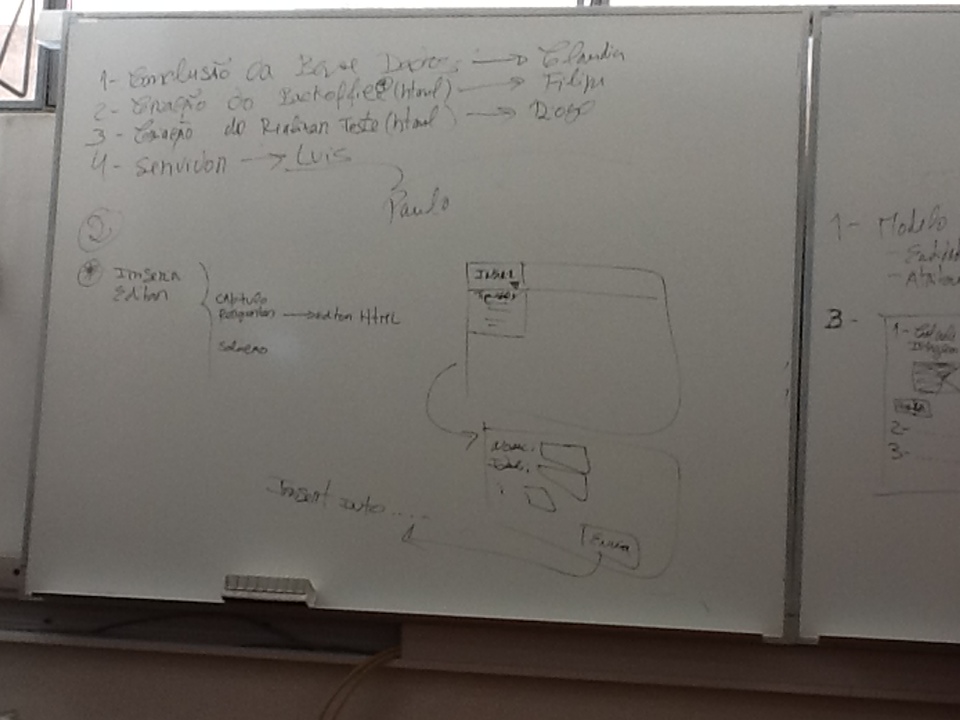 1- Conclusão da Base Dados → Claudia
2- Criação do Backoffice (html) → Filipe
3- Criação do Realizar Teste (html) →
4- Servidor → Luis
Paulo
2
Inserir
Editar
Capitulo
Perguntas → editar HTML
Solução
Inserir
Nome:
Idade:
Insert into .....
Enviar
1- Modelo
3-
1-
2-
3-